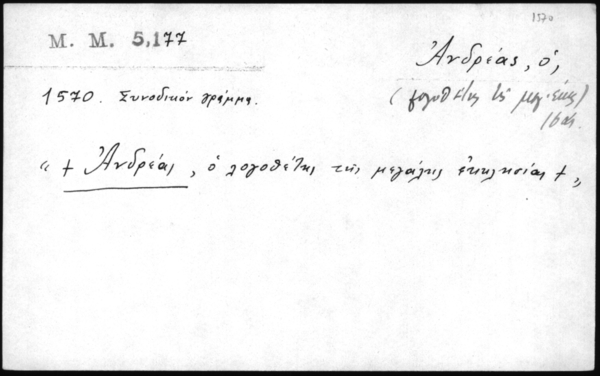 1570
M. M. 5,177
Ἀνδρέας, ὁ,
1570. Συνοδικὸν γράμμα.
(λογοθέτης τῆς μεγ. ἐκκ)
16 αι.
« + Ἀνδρέας, ὁ λογοθέτης τῆς μεγάλης ἐκκλησίας + »